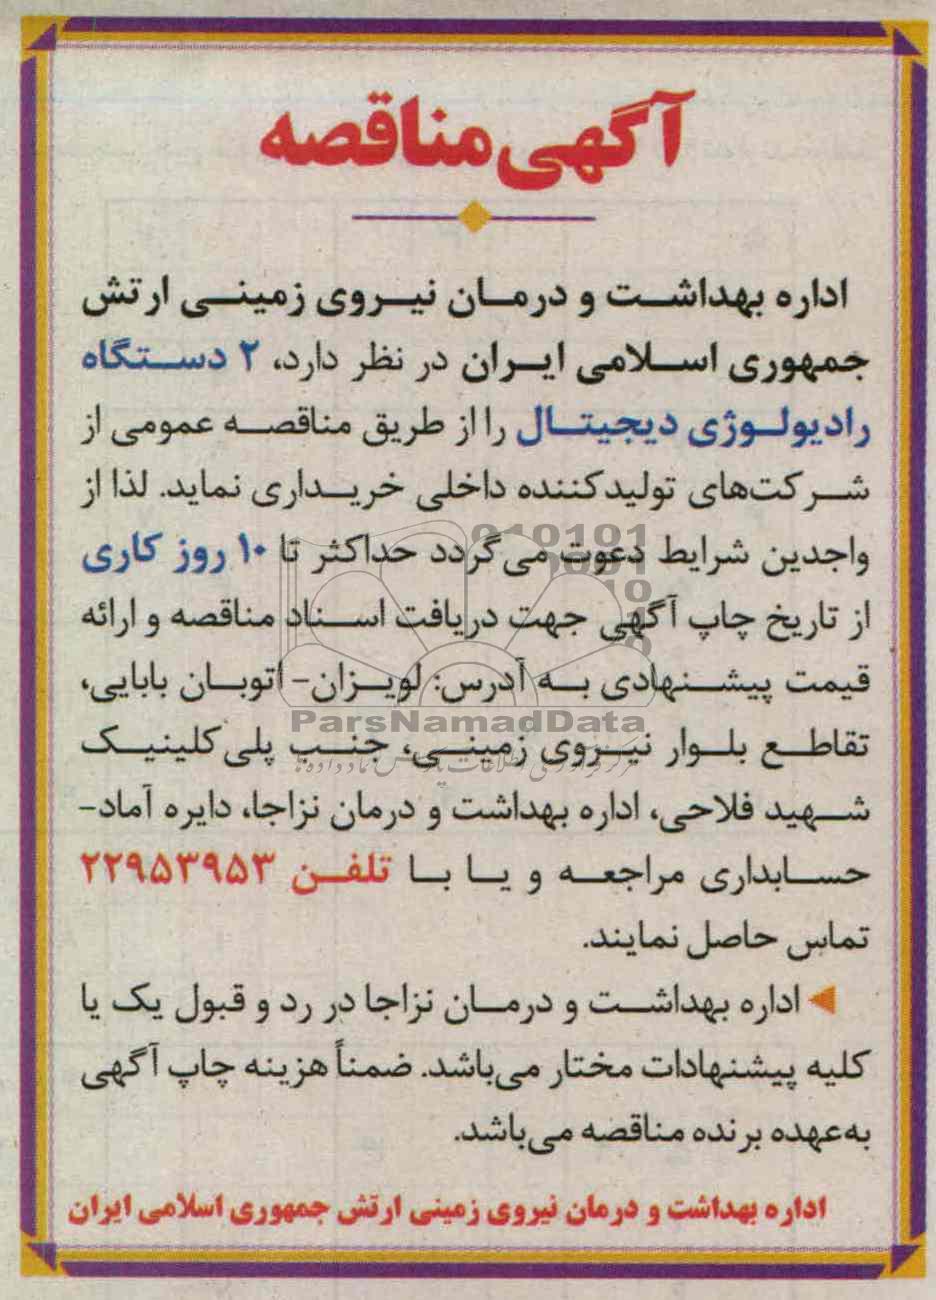 آگهی مناقصه
اداره بهداشت و درمان نیروی زمینی ارتش
جمهوری اسلامی ایران در نظر دارد، ۲ دستگاه
رادیولوژی دیجیتال را از طریق مناقصه عمومی از
شرکت‌های تولیدکننده داخلی خریداری نماید. لذا از
واجدین شرایط دعوت می‌گردد حداکثر تا ۱۰ روز کاری
از تاریخ چاپ آگهی جهت دریافت اسناد مناقصه و ارائه
قیمت پیشنهادی به آدرس: لویزان- اتوبان بابایی،
تقاطع بلوار نیروی زمینی، جنب پلی‌کلینیک
شهید فلاحی، اداره بهداشت و درمان نزاجا، دایره آماد-
حسابداری مراجعه و یا با تلفن ۲۲۹۵۳۹۵۳
تماس حاصل نمایند.
اداره بهداشت و درمان نزاجا در رد و قبول یک یا
کلیه پیشنهادات مختار می‌باشد. ضمناً هزینه چاپ آگهی
به‌عهده برنده مناقصه می‌باشد.
اداره بهداشت و درمان نیروی زمینی ارتش جمهوری اسلامی ایران
ParsNamadData